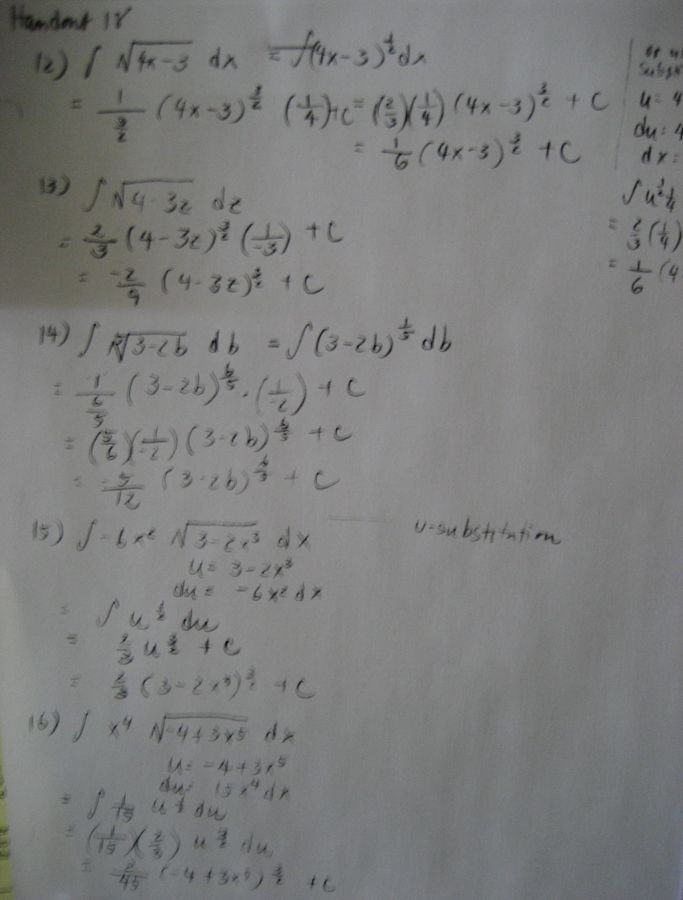 Handout 18
12) ∫ √(4x-3) dx = ∫(4x-3)^(1/2) dx
= 1/(3/2) (4x-3)^(3/2) (1/4)+C = (2/3)(1/4)(4x-3)^(3/2) + C
= 1/6 (4x-3)^(3/2) + C
13) ∫ √(4-3z) dz
= 2/3 (4-3z)^(3/2) (1/-3) + C
= -2/9 (4-3z)^(3/2) + C
14) ∫ ⁵√(3-2b) db = ∫(3-2b)^(1/5) db
= 1/(6/5) (3-2b)^(6/5) · (1/-2) + C
= (5/6)(1/-2)(3-2b)^(6/5) + C
= -5/12 (3-2b)^(6/5) + C
15) ∫ -6x² √(3-2x³) dx
u-substitution
u = 3-2x³
du = -6x² dx
= ∫ u^(1/2) du
= 2/3 u^(3/2) + C
= 2/3 (3-2x³)^(3/2) + C
16) ∫ x⁴ √(-4+3x⁵) dx
u = -4+3x⁵
du = 15x⁴ dx
= ∫ 1/15 u^(1/2) du
= (1/15)(2/3) u^(3/2) du
= 2/45 (-4+3x⁵)^(3/2) + C
or
u = 4
du = 4
dx =
∫ u^(1/2) 1/4
= 2/3 (1/4)
= 1/6 (4